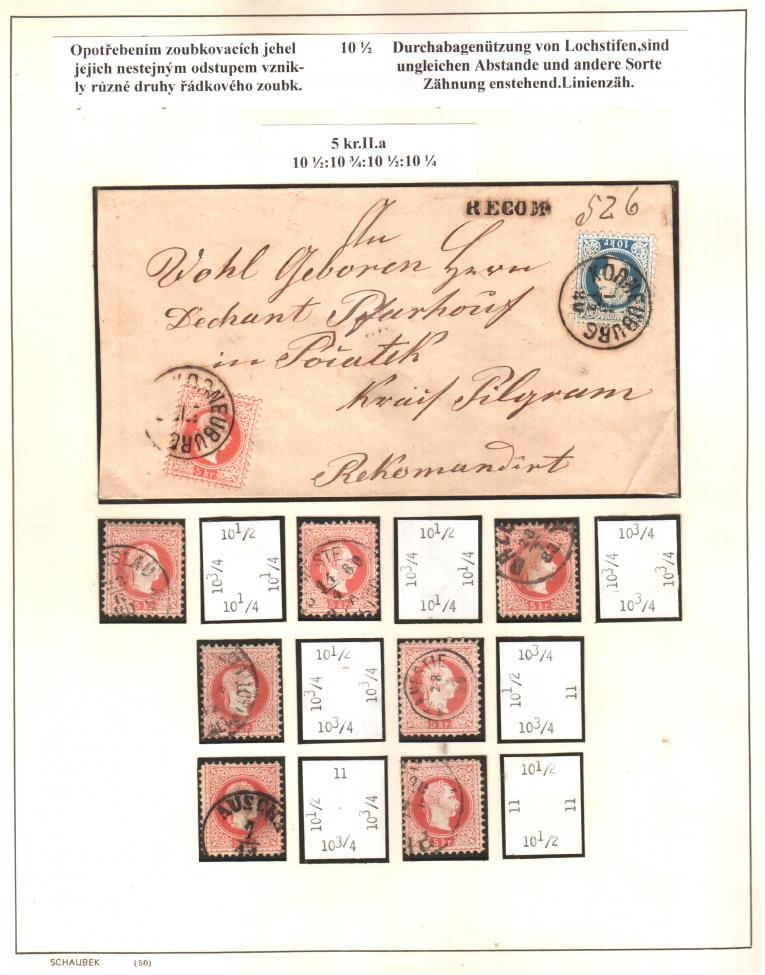 Opotřebením zoubkovacích jehel
jejich nestejným odstupem vznik-
ly různé druhy řádkového zoubk.
10 ½
Durchabagenützung von Lochstifen,sind
ungleichen Abstande und andere Sorte
Zähnung enstehend.Linienzäh.
5 kr.II.a
10 ½:10 ¾:10 ½:10 ¼
RECOM
526
10 kr.
KORNEUBURG
An
Wohl Geboren Herrn
Dechant Pfarhouf
in Počatek
Krais Pilgram
Rekomandirt
KORNEUBURG
5 kr.
5 kr.
10 1/2
10 3/4
10 1/4
10 1/4
5 kr.
10 1/2
10 3/4
10 1/4
10 1/4
5 kr.
10 3/4
10 1/2
10 3/4
10 3/4
10 1/2
10 3/4
10 3/4
10 3/4
5 kr.
10 3/4
10 1/2
11
10 3/4
AUSCH
11
10 1/2
10 3/4
10 3/4
5 kr.
10 1/2
11
11
10 1/2
SCHAUBEK (50)